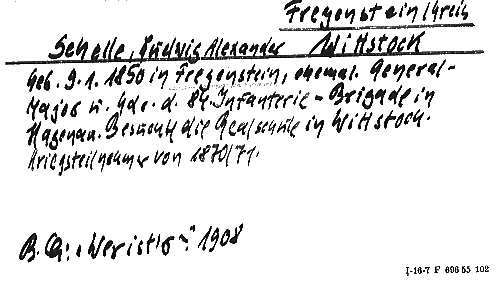 Fregenstein/Kreis
Schelle, Ludwig Alexander Wittstock
Geb. 9.1.1850 in Fregenstein, ehemal. General-
Major u. Kde. d. 84. Infanterie-Brigade in
Hagenau. Besuchte die Realschule in Wittstock.
Kriegsteilnehmer von 1870/71.
B. Qu.: "Wer ist's" 1908
I-16-7 F 696 55 102